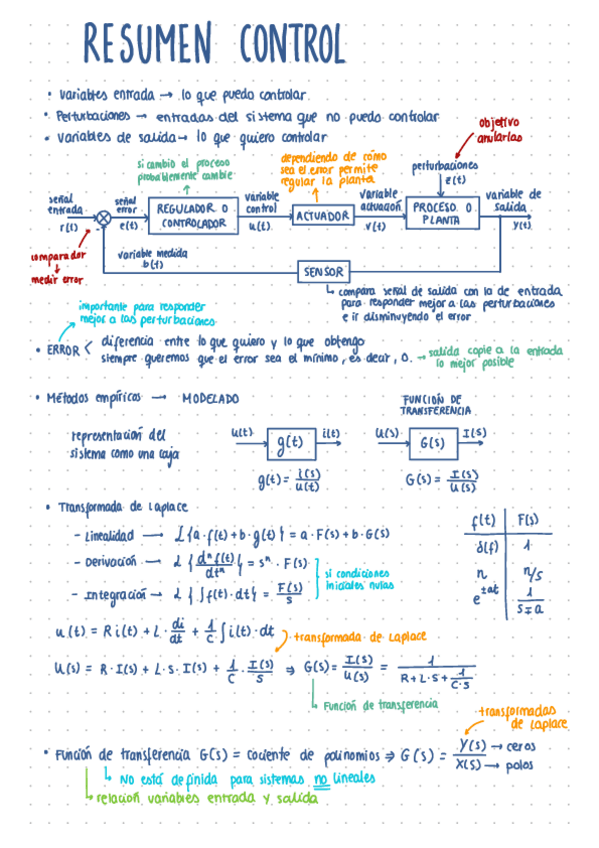 RESUMEN CONTROL
• Variables entrada → lo que puedo controlar
• Perturbaciones → entradas del sistema que no puedo controlar
• Variables de salida → lo que quiero controlar
objetivo
anularlas
si cambio el proceso
probablemente cambie
dependiendo de cómo
sea el error permite
regular la planta
perturbaciones
z(t)
señal
entrada
r(t)
señal
error
e(t)
REGULADOR O
CONTROLADOR
variable
control
u(t)
ACTUADOR
variable
actuación
v(t)
PROCESO O
PLANTA
variable de
salida
y(t)
comparador
↓
medir error
variable medida
b(t)
SENSOR
↳ compara señal de salida con la de entrada
para responder mejor a las perturbaciones
e ir disminuyendo el error
importante para responder
mejor a las perturbaciones
• ERROR < diferencia entre lo que quiero y lo que obtengo
siempre queremos que el error sea el mínimo, es decir, 0. → salida copie a la entrada
lo mejor posible
• Métodos empíricos → MODELADO
FUNCIÓN DE
TRANSFERENCIA
representación del
sistema como una caja
u(t) g(t) i(t)
U(s) G(s) I(s)
g(t) = i(s)/u(t)
G(s) = I(s)/U(s)
• Transformada de Laplace
- Linealidad → L{a·f(t)+b·g(t)} = a·F(s)+b·G(s)
- Derivación → L{dⁿf(t)/dtⁿ} = sⁿ·F(s)
- Integración → L{∫f(t)·dt} = F(s)/s
si condiciones
iniciales nulas
f(t) F(s)
δ(t) 1
n n/s
e^±at 1/s∓a
u(t) = Ri(t) + L·di/dt + 1/C ∫i(t)·dt
transformada de Laplace
U(s) = R·I(s) + L·s·I(s) + 1/C·I(s)/s ⇒ G(s) = I(s)/U(s) = 1/(R+L·s+1/C·s)
↳ Función de transferencia
transformadas
de Laplace
• Función de transferencia G(s) = cociente de polinomios ⇒ G(s) = Y(s)/X(s) → ceros → polos
↳ No está definida para sistemas no lineales
↳ relación variables entrada y salida